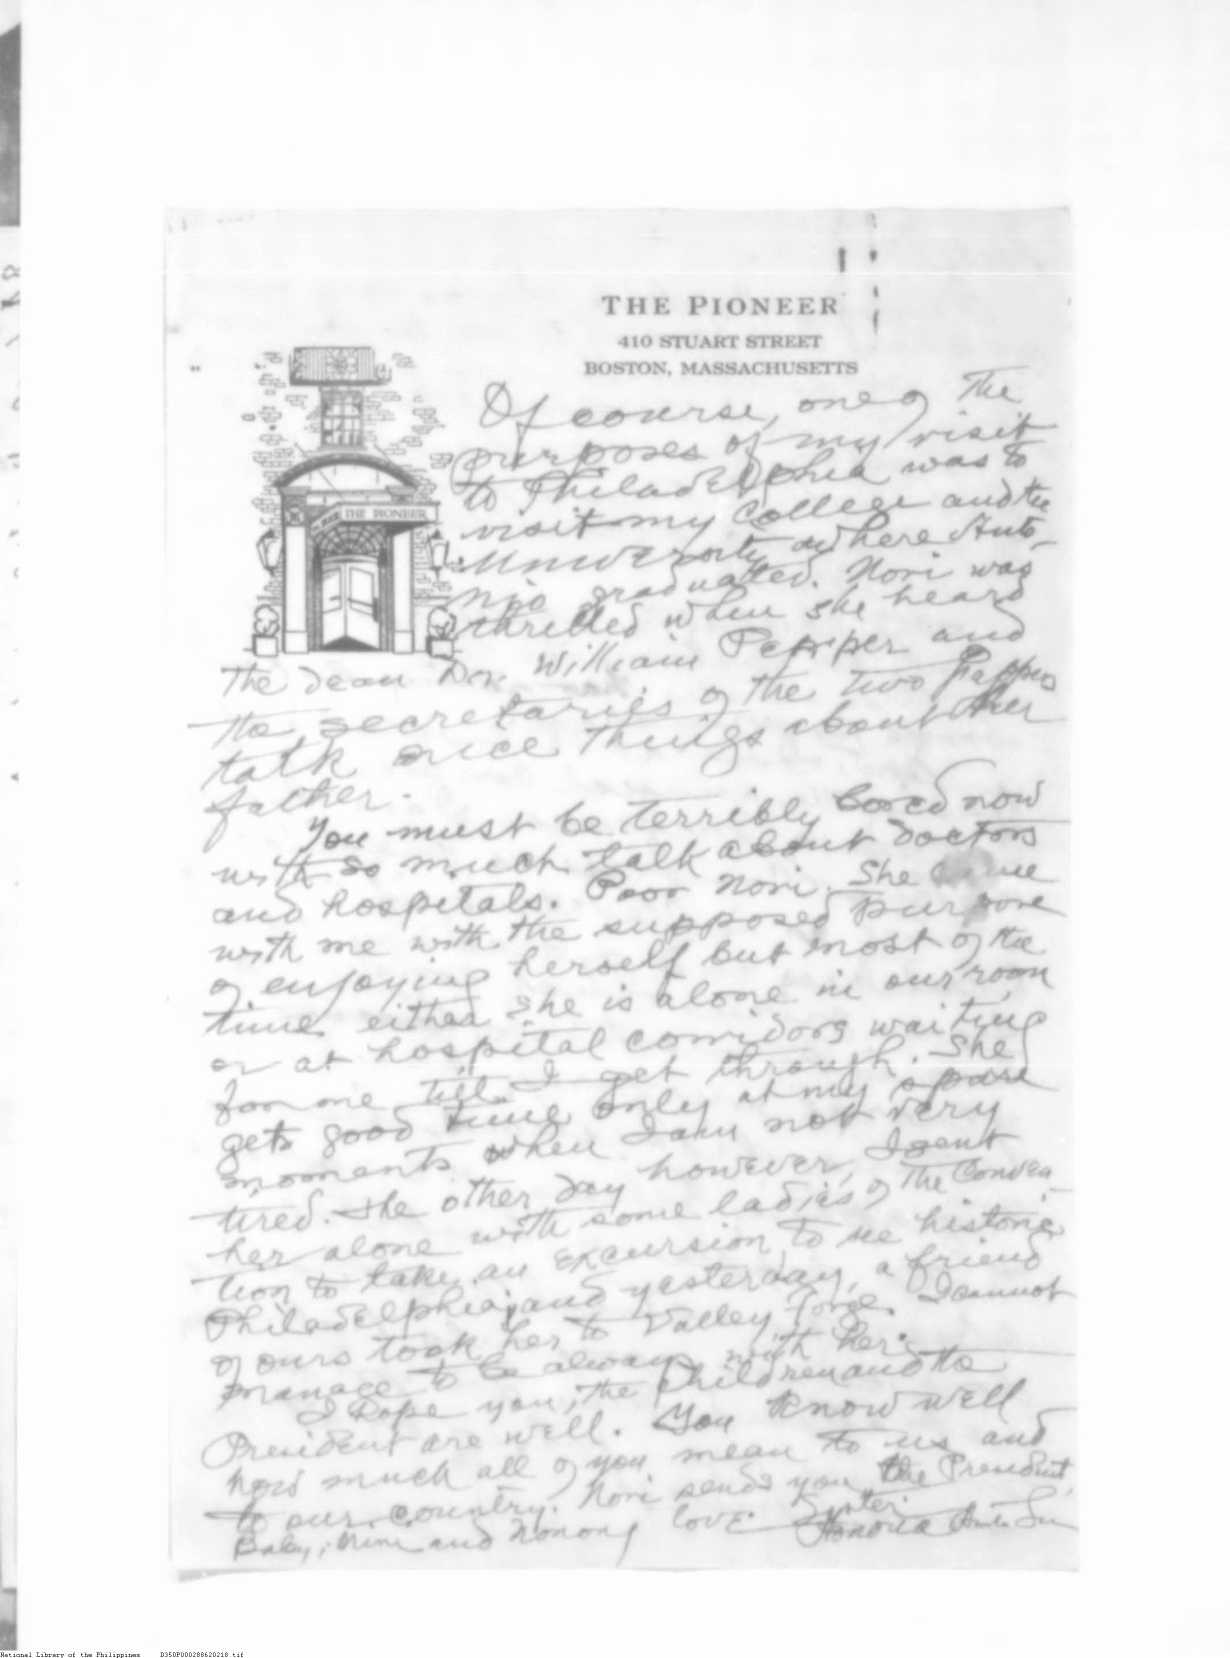 THE PIONEER
410 STUART STREET
BOSTON, MASSACHUSETTS
THE PIONEER
Of course, one of the
purposes of my visit
to Philadelphia was to
visit my College and the
University where Anto-
nio graduated. Nori was
thrilled when she heard
the dean Dr. William Pepper and
the secretaries of the two Peppers
talk nice things about her
father.
You must be terribly bored now
with so much talk about doctors
and hospitals. Poor Nori. She came
with me with the supposed purpose
of enjoying herself but most of the
time either she is alone in our room
or at hospital corridors waiting
for me till I get through. She
gets good time only at my spare
moments when I am not very
tired. The other day however, I sent
her alone with some ladies of the Conven-
tion to take an excursion to see historic
Philadelphia, and yesterday, a friend
of ours took her to Valley Forge. I cannot
manage to be always with her.
I hope you, the children and the
President are well. You know well
how much all of you mean to us and
to our country. Nori sends you the President,
Baby, Nini and Nonong love. Sister
Honoria
National Library of the Philippines D350P000288620218.tif